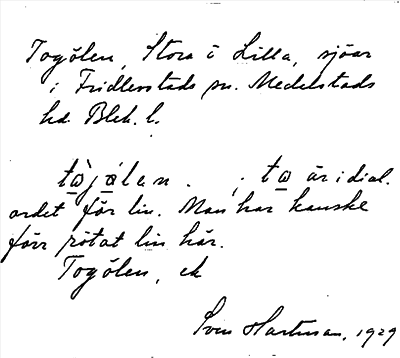 Togölen, Stora o Lilla, sjöar
i Fridlevstads sn. Medelstads
hd Blek. l.
tὼ̲jǿ̲lan. ; tω̲ är i dial.
ordet för lin. Man har kanske
förr rötat lin här.
Togölen, ek
Sven Hartman, 1929